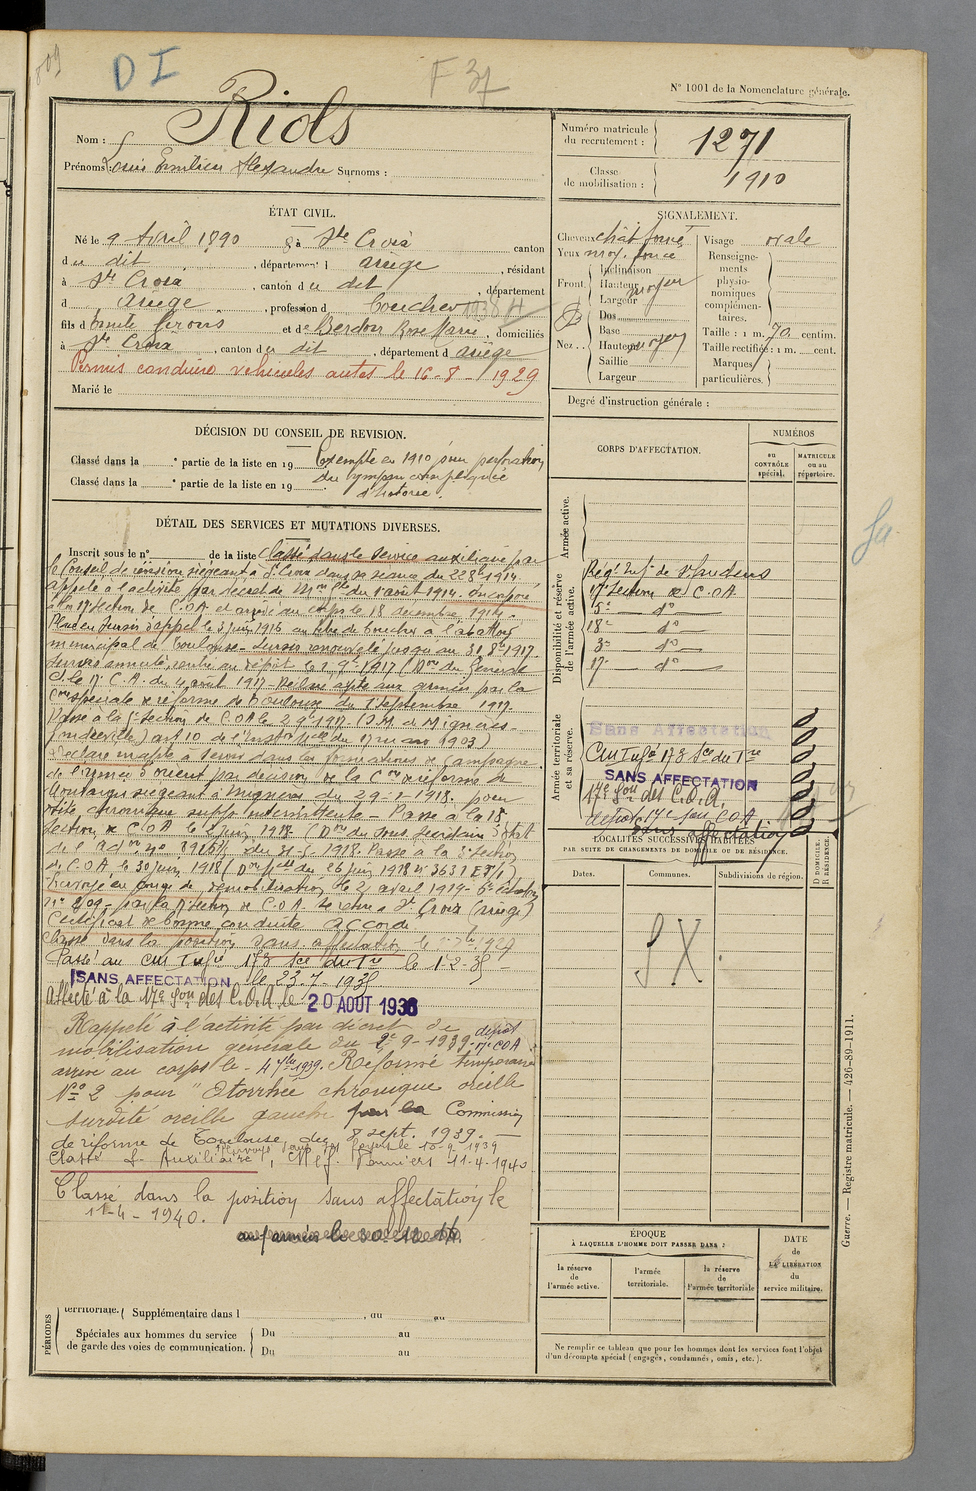 809
D I
F 37
N° 1001 de la Nomenclature générale.
Nom : Riols
Prénoms : Louis Emilien Alexandre Surnoms :
Numéro matricule du recrutement : 1271
Classe de mobilisation : 1910
ÉTAT CIVIL.
Né le 9 Avril 1890 à Ste Croix canton
d u dit, département d Ariège, résidant
à Ste Croix, canton d u dit, département
d Ariège, profession d boucher 1938
fils d Emile Girons et de Berdou Rose Marie, domiciliés
à Ste Croix, canton d u dit, département d Ariège
Permis conduire véhicules autos le 16-8-1929
Marié le
SIGNALEMENT.
Cheveux chât foncé
Yeux
Front. Inclinaison
Hauteur moyen
Largeur
Nez. Dos
Base
Hauteur moyen
Saillie
Largeur
Visage ovale
Renseignements physionomiques complémentaires.
Taille : 1 m. 70 centim.
Taille rectifiée : 1 m. cent.
Marques particulières.
Degré d'instruction générale :
DÉCISION DU CONSEIL DE REVISION.
Classé dans la e partie de la liste en 19 Exempté en 1910 pour perforation
Classé dans la e partie de la liste en 19 du tympan compliquée
d'otorée.
DÉTAIL DES SERVICES ET MUTATIONS DIVERSES.
Inscrit sous le n° de la liste Classé dans le Service auxiliaire par
le Conseil de révision siégeant à St Croix dans sa séance du 22 8bre 1914.
Appelé à l'activité par décret de Mon Gle du 1er août 1914. Incorporé
à la 17 Section de C.O.A. et arrivé au corps le 18 décembre 1914.
Placé en Sursis d'appel le 3 juin 1916 au titre de boucher à l'abattoir
municipal de Toulouse - Sursis renouvelé jusqu'au 31.8bre 1917.
Sursis annulé, rentre au dépôt le 2 9 1917 (Don du Général
Ct le 17e C.A. du 4 août 1917 - Reclassé apte aux armées par la
Con spéciale de réforme de Toulouse du 1 Septembre 1917.
Passé à la 5e Section de C.O.A le 2 9 1917
art 10 de l'Instron du 17 mars 1903)
Déclaré inapte à servir dans les formations de Campagne
de l'armée d'orient par décision de la Con de réforme de
Montargis siégeant à Mignères du 29-1-1918. pour
otite chronique supp. intermittente - Passé à la 18
Section de C.O.A. le 2 juin 1918 (Don du Sous Secrétaire d'état
du 31-5 1918. Passé à la 3e Section
de C.O.A. le 30 juin 1918 (Don du 26 juin 1918 n° 3631
Envoyé en congé de démobilisation le 2 avril 1919 - 6e échelon
par la 17 Section de C.O.A. Se retire à St Croix (Ariège)
Certificat de bonne conduite accordé
Classé dans la position sans affectation le
Passé au Cm Tnfe 173 Sce du Tre le 1-2-35
SANS AFFECTATION le 23.7-1935
Affecté à la 17e Son des C.O.A. le 20 AOUT 1938
Rappelé à l'activité par décret de
mobilisation générale du 2-9-1939. dépôt 17e COA
arrivé au corps le 4 7bre 1939. Réformé temporaire
N° 2 pour "Otorrhée chronique oreille
surdité oreille gauche par la Commission
de réforme de Toulouse, du 8 sept. 1939.
Renvoyé dans ses foyers le 10-9-1939
Classé S. Auxiliaire, Pamiers 11-4-1940
Classé dans la position sans affectation le
11-4-1940.
CORPS D'AFFECTATION.
NUMÉROS
au CONTRÔLE spécial.
MATRICULE ou au répertoire.
Armée active.
Disponibilité et réserve de l'armée active.
Régt Inf. de St Gaudens
17e Section de C.O.A.
5e do
18e do
3e do
17 do
Armée territoriale et sa réserve.
Sans Affectation
Cm Tnfe 173 Sce du Tre
SANS AFFECTATION
17e Son des C.O.A.
dépôt 17e Son COA
sans affectation
LOCALITÉS SUCCESSIVES HABITÉES
PAR SUITE DE CHANGEMENTS DE DOMICILE OU DE RÉSIDENCE.
Dates. Communes. Subdivisions de région.
D DOMICILE. R RÉSIDENCE.
S X.
ÉPOQUE
À LAQUELLE L'HOMME DOIT PASSER DANS :
la réserve de l'armée active.
l'armée territoriale.
la réserve de l'armée territoriale
DATE de LA LIBÉRATION du service militaire.
Ne remplir ce tableau que pour les hommes dont les services font l'objet
d'un décompte spécial (engagés, condamnés, omis, etc.).
PÉRIODES
territoriale. Supplémentaire dans l , du au
Spéciales aux hommes du service
de garde des voies de communication.
Du au
Du au
Guerre. — Registre matricule. — 426-89-1911.